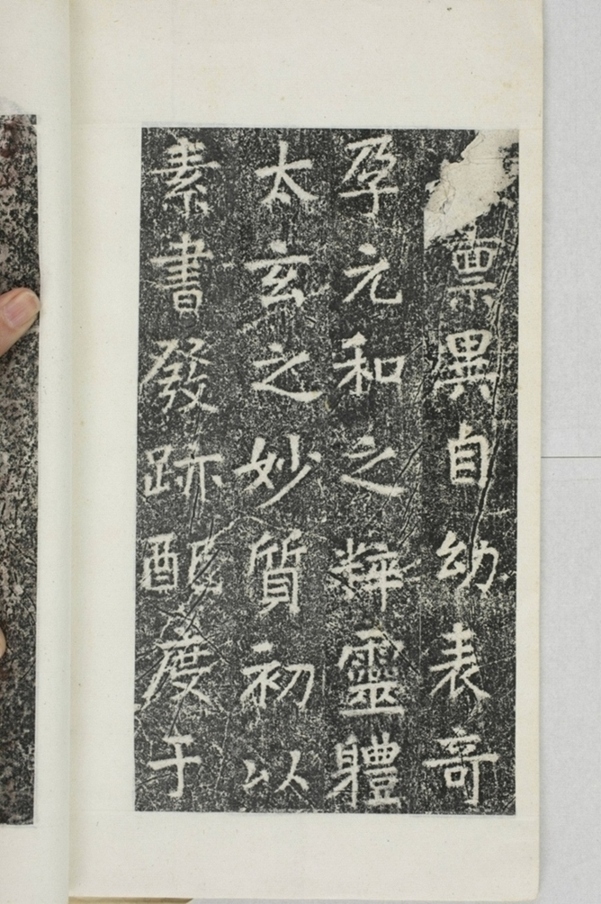 禀異自幼表奇
孕元和之粹靈體
太玄之妙質初以
素書發跡配度于